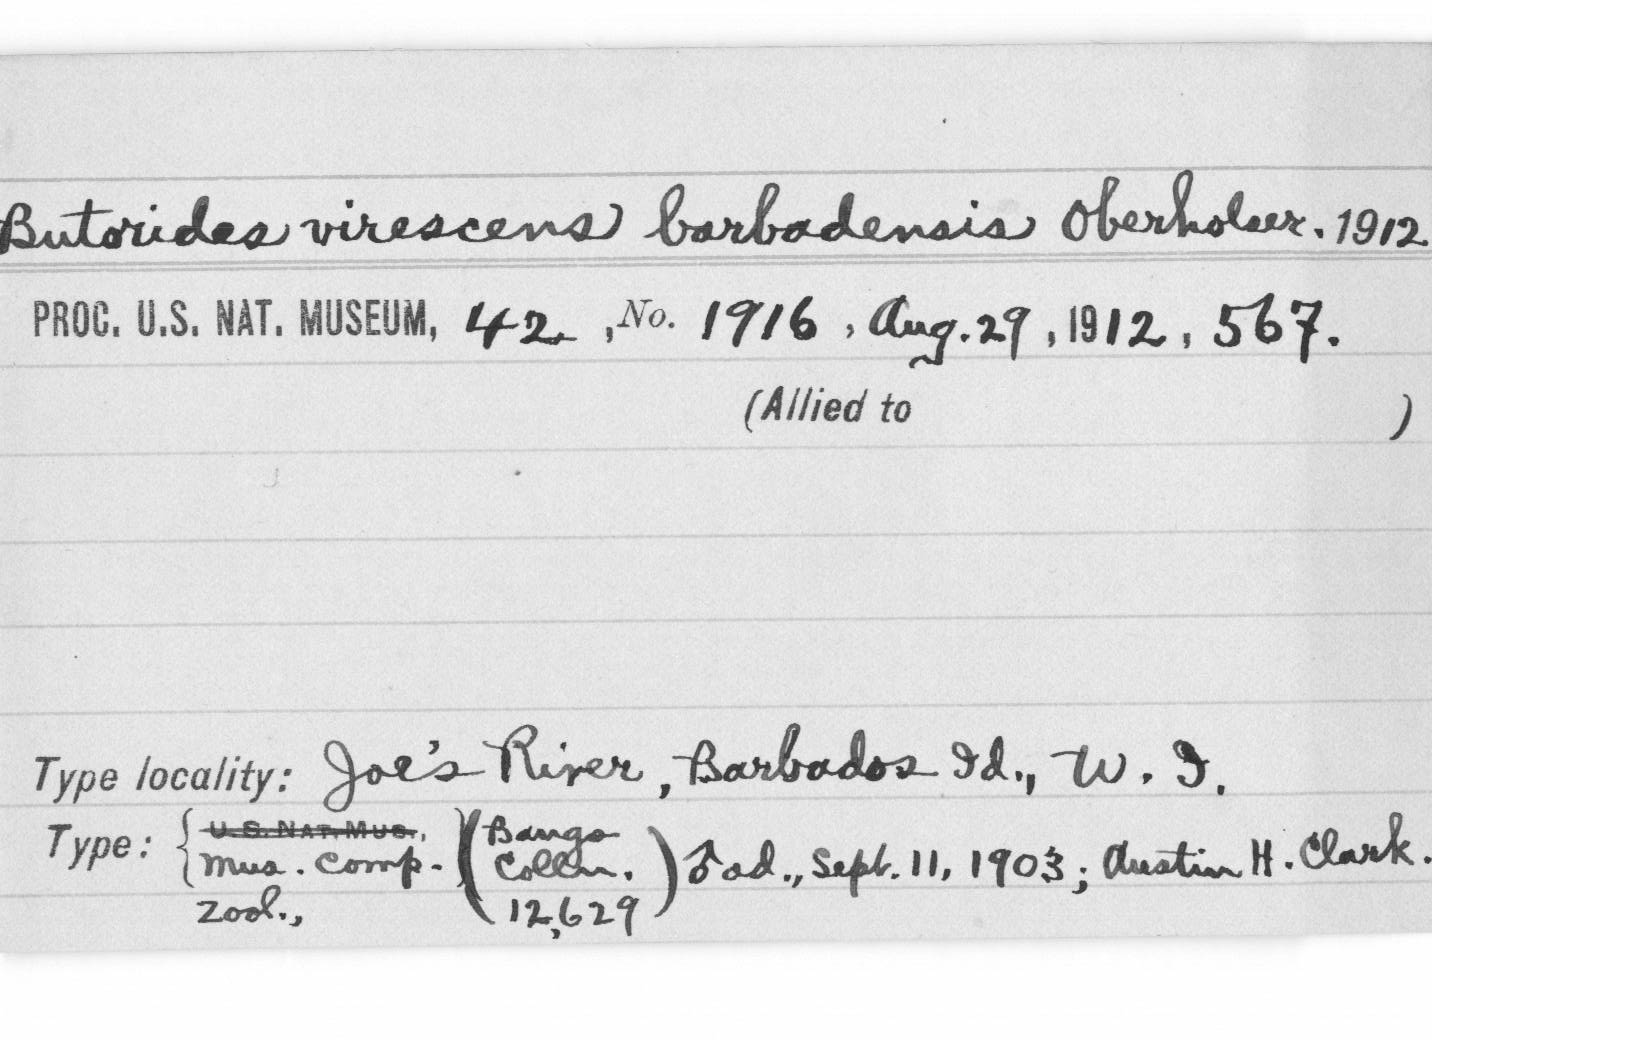 Butorides virescens barbadensis Oberholser. 1912.
PROC. U.S. NAT. MUSEUM, 42, No. 1916, Aug. 29, 1912, 567.
(Allied to )
Type locality: Joe's River, Barbados Id., W. I.
Type: { U.S. NAT. MUS., } (Bangs
Mus. Comp. Colln. ) ♂ ad., Sept. 11, 1903; Austin H. Clark.
Zool., 12,629